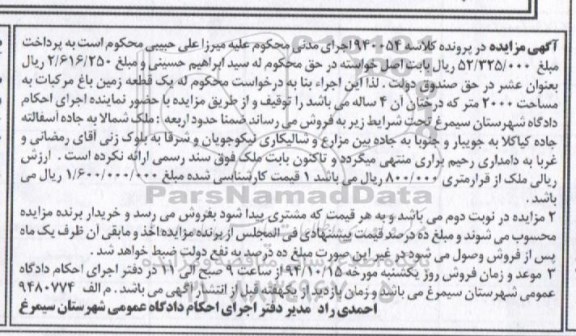 آگهی مزایده در پرونده کلاسه ۹۴۰۰۵۴ اجرای مدنی محکوم علیه میرزا علی حبیبی محکوم است به پرداخت
مبلغ ۵۲/۳۲۵/۰۰۰ ریال بابت اصل خواسته در حق محکوم له سید ابراهیم حسینی و مبلغ ۲/۶۱۶/۲۵۰ ریال
بعنوان عشر در حق صندوق دولت . لذا این اجراء بنا به درخواست محکوم له یک قطعه زمین باغ مرکبات به
مساحت ۲۰۰۰ متر که درختان آن ۴ ساله می باشد را توقیف و از طریق مزایده با حضور نماینده اجرای احکام
دادگاه شهرستان سیمرغ تحت شرایط زیر به فروش می رساند ضمنا حدود اربعه : ملک شمالا به جاده آسفالته
جاده کیاکلا به جویبار و جنوبا به جاده بین مزارع و شالیکاری نیکوجویان و شرقا به بلوک زنی آقای رمضانی و
غربا به دامداری رحیم براری منتهی میگردد و تاکنون بابت ملک فوق سند رسمی ارائه نکرده است . ارزش
ریالی ملک از قرار متری ۸۰۰/۰۰۰ ریال می باشد ۱ قیمت کارشناسی شده مبلغ ۱/۶۰۰/۰۰۰/۰۰۰ ریال می
باشد .
۲ مزایده در نوبت دوم می باشد و به هر قیمت که مشتری پیدا شود بفروش می رسد و خریدار برنده مزایده
محسوب می شوند و مبلغ ده درصد قیمت پیشنهادی فی المجلس از برنده مزایده اخذ و مابقی آن ظرف یک ماه
پس از فروش وصول می شود در غیر این صورت مبلغ ده درصد به نفع دولت ضبط خواهد شد .
۳ موعد و زمان فروش روز یکشنبه مورخه ۹۴/۱۰/۱۵ از ساعت ۹ صبح الی ۱۱ در دفتر اجرای احکام دادگاه
عمومی شهرستان سیمرغ می باشد و زمان بازدید از یکهفته قبل از انتشار آگهی می باشد . م الف ۹۴۸۰۷۷۴
احمدی راد مدیر دفتر اجرای احکام دادگاه عمومی شهرستان سیمرغ
ParsNamadData